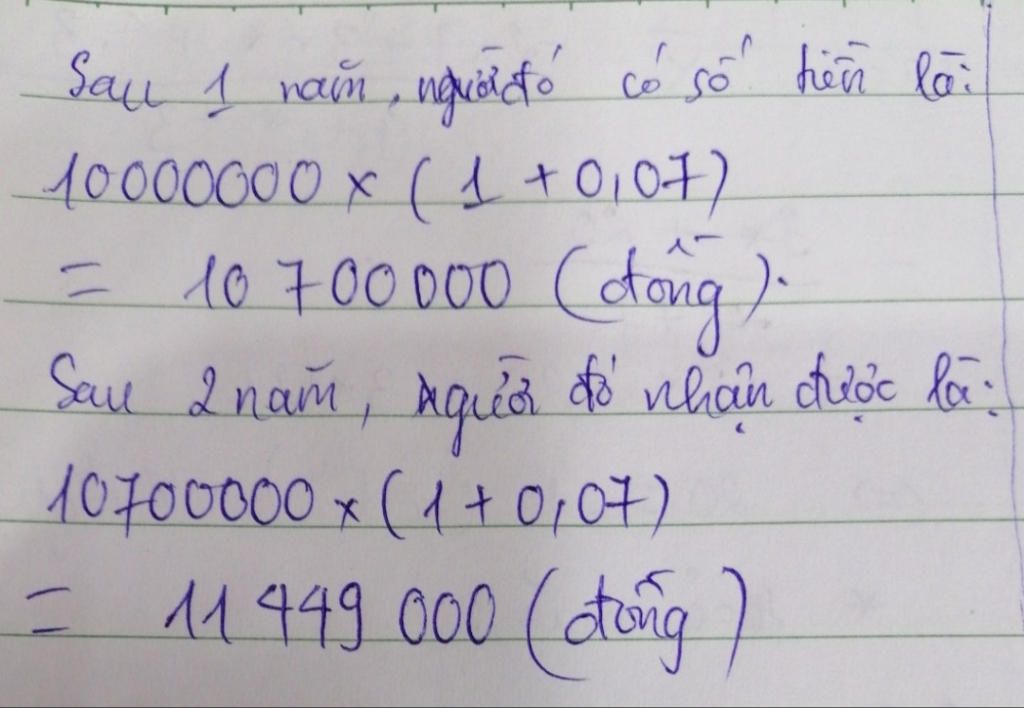 Sau 1 năm, người đó có số tiền là:
10000000 x ( 1 + 0,07)
= 10 700000 (đồng).
Sau 2 năm, người đó nhận được là:
10700000 x (1 + 0,07)
= 11 449 000 (đồng)